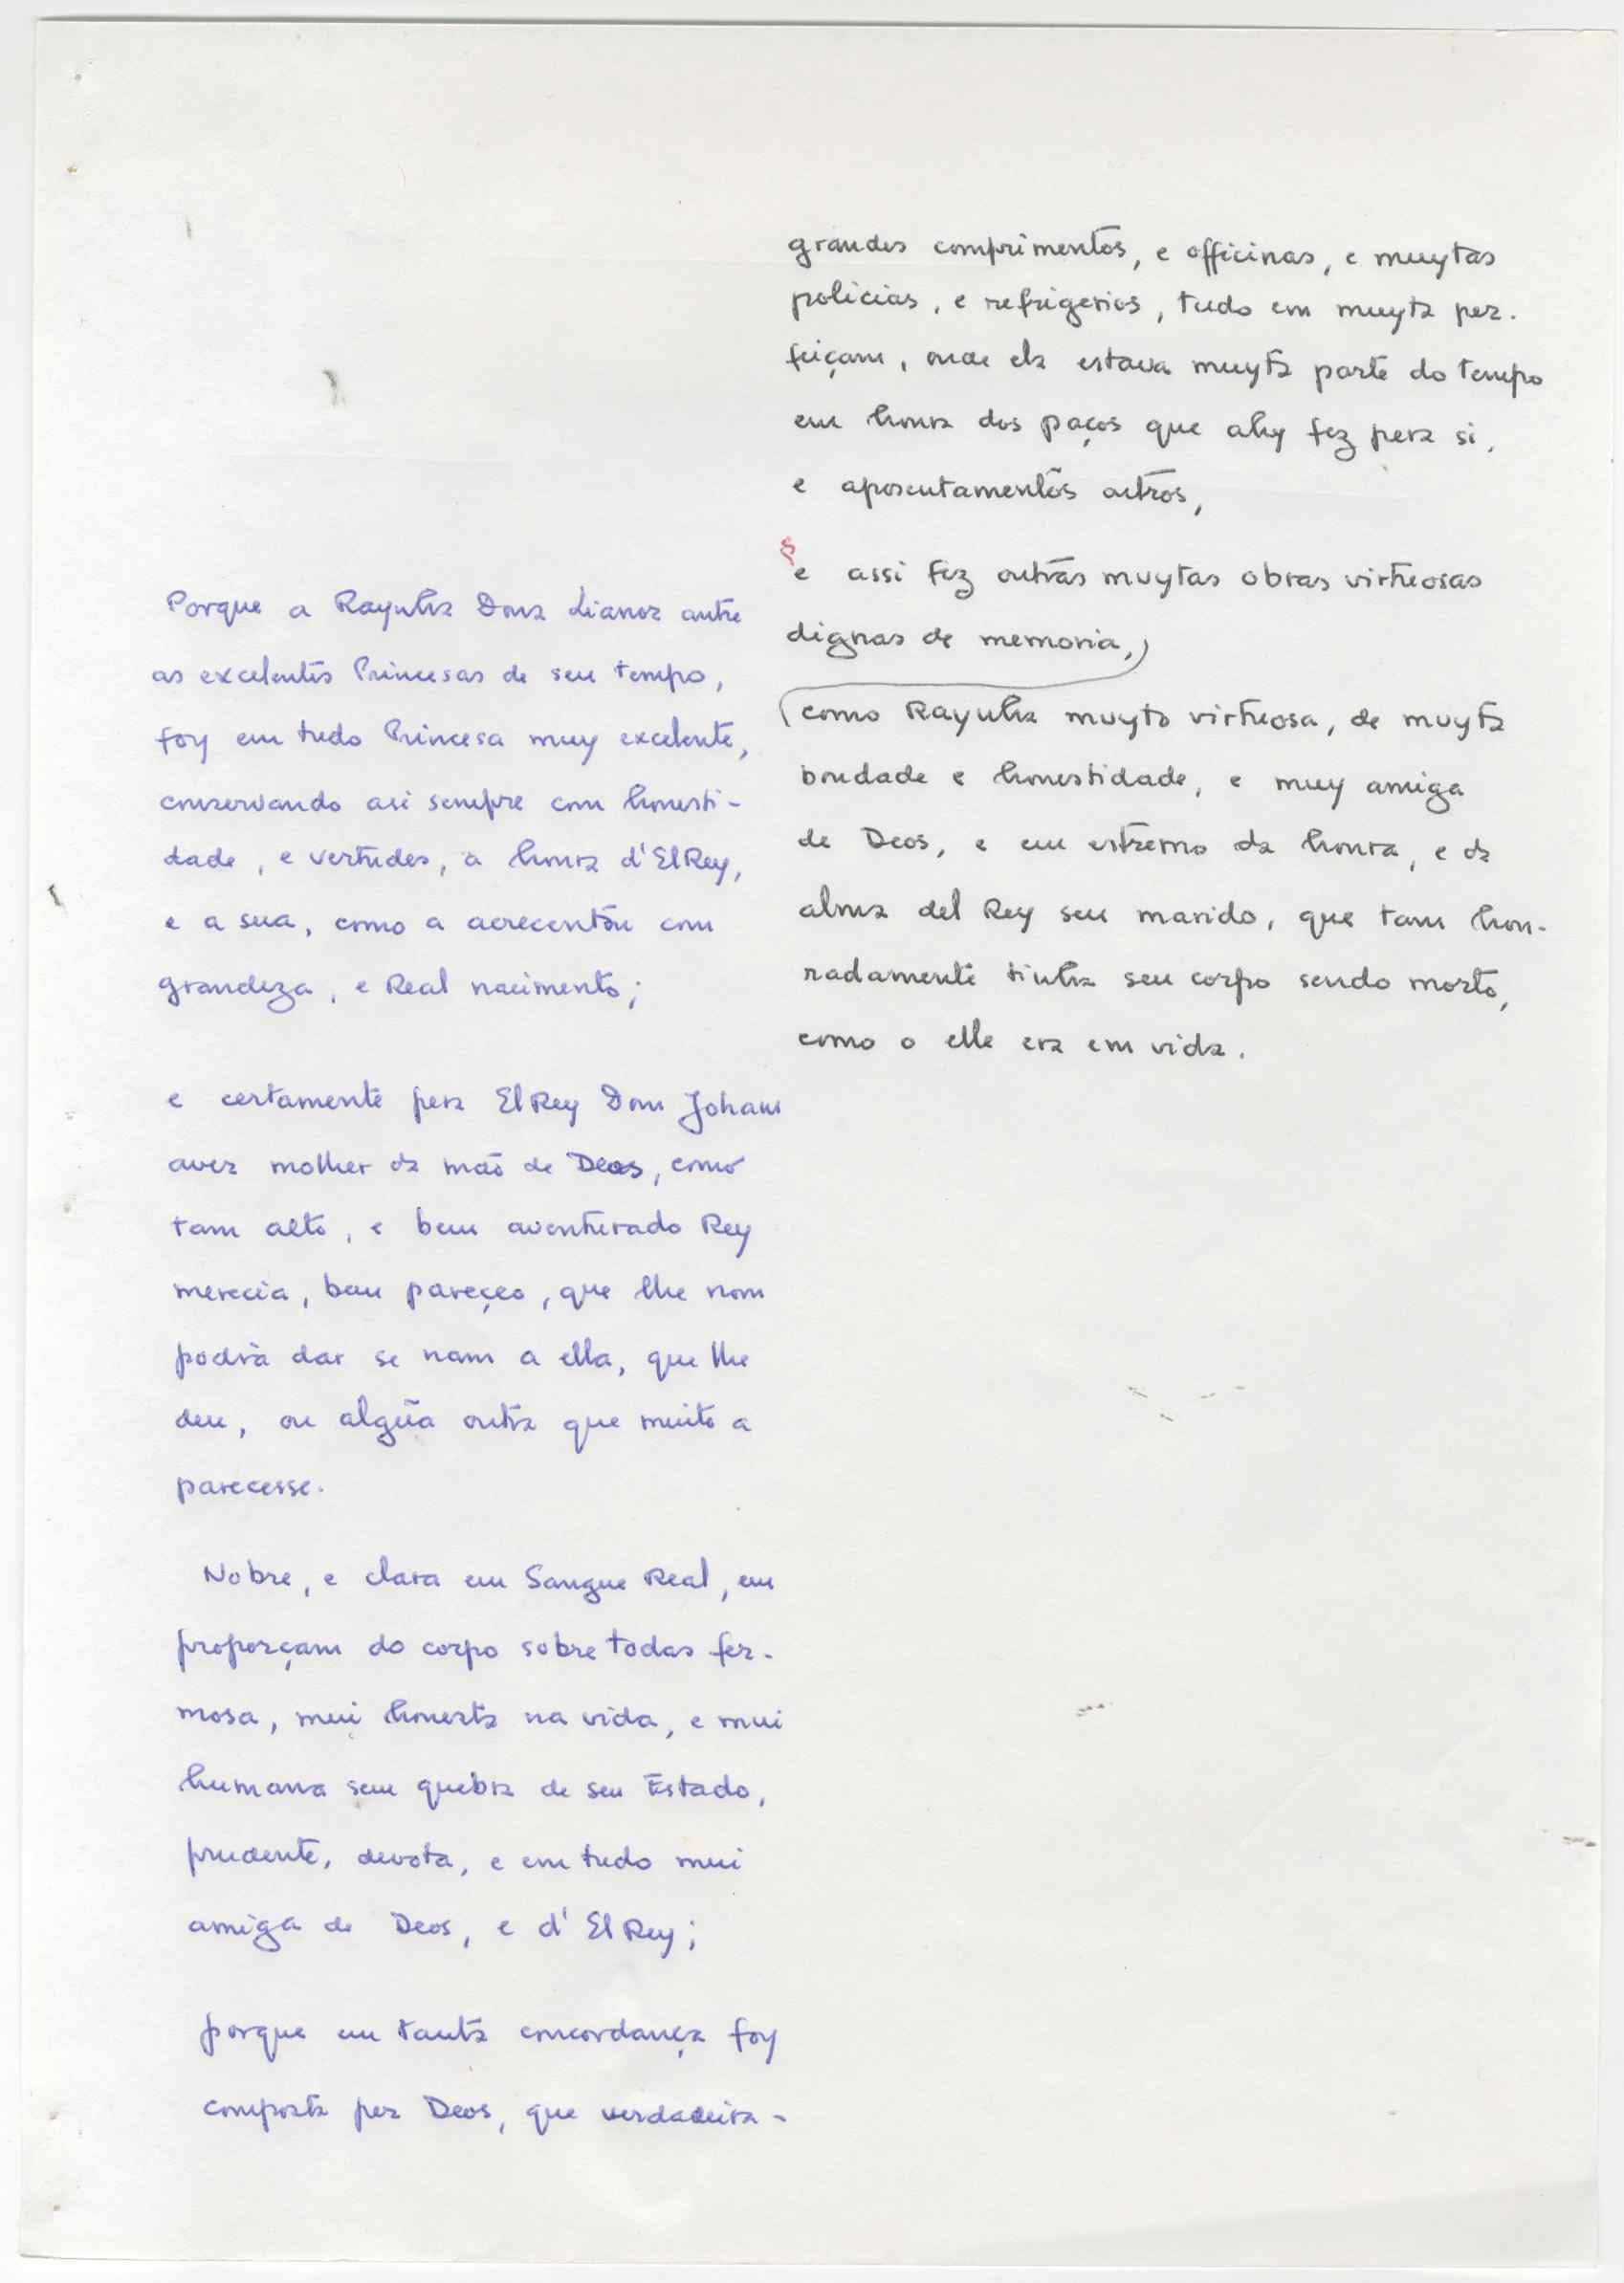 Porque a Raynha Dona Lianor antre
as excelentes Princesas de seu tempo,
foy em tudo Princesa muy excelente,
conservando asi sempre com honesti-
dade, e vertudes, a honra d'ElRey,
e a sua, como a acrecentou com
grandeza, e Real nacimento;
e certamente pera ElRey Dom Joham
aver molher da mão de Deos, como
tam alto, e bem aventurado Rey
merecia, bem pareçeo, que lhe nom
podia dar se nam a ella, que lhe
deu, ou algũa outra que muito a
parecesse.
Nobre, e clara em Sangue Real, em
proporçam do corpo sobre todas fer-
mosa, mui honesta na vida, e mui
humana sem quebra de seu Estado,
prudente, devota, e em tudo mui
amiga de Deos, e d'ElRey;
porque em tanta concordança foy
composta per Deos, que verdadeira-
grandes comprimentos, e officinas, e muytas
policias, e refrigerios, tudo em muyta per-
feiçam, onde ela estava muyta parte do tempo
em honra dos paços que ahy fez pera si,
e aposentamentos outros,
§ e assi fez outras muytas obras virtuosas
dignas de memoria,)
(como Raynha muyto virtuosa, de muyta
bondade e honestidade, e muy amiga
de Deos, e em estremo da honra, e da
alma del Rey seu marido, que tam hon-
radamente tinha seu corpo sendo morto,
como o elle era em vida.